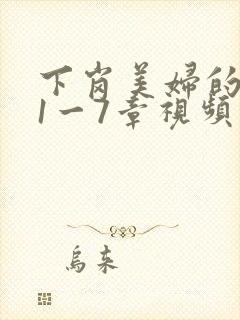 下岗美婦的
1一7章視頻
烏来